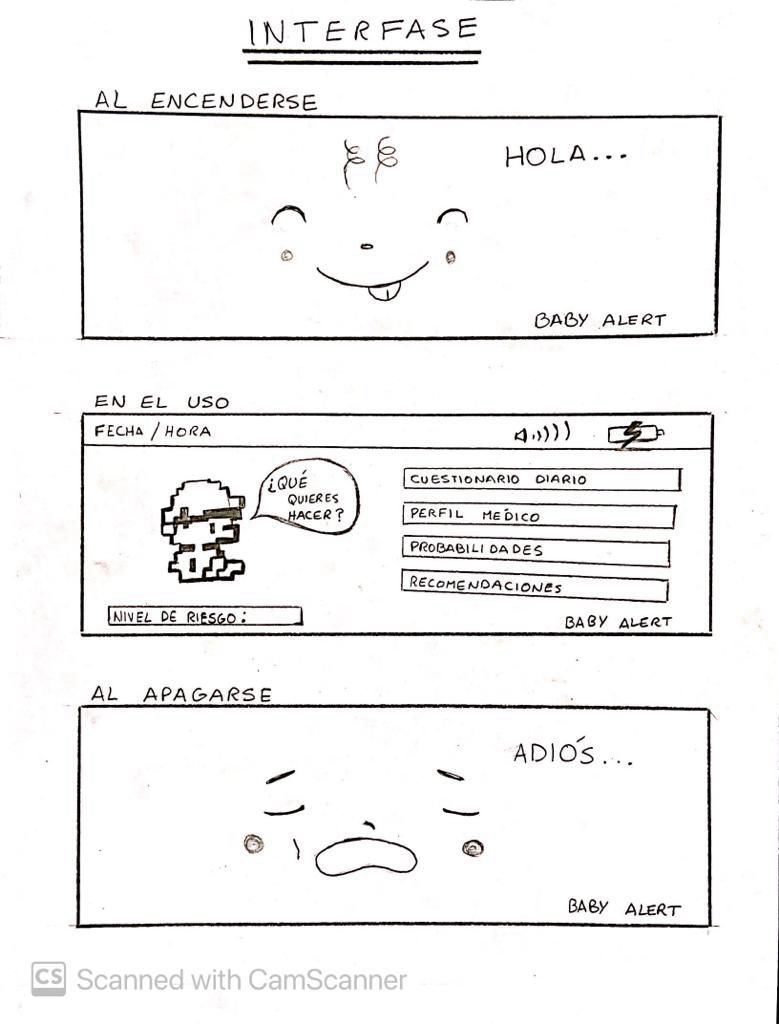 INTERFASE
AL ENCENDERSE
HOLA...
BABY ALERT
EN EL USO
FECHA / HORA
¿QUÉ
QUIERES
HACER?
CUESTIONARIO DIARIO
PERFIL MÉDICO
PROBABILIDADES
RECOMENDACIONES
NIVEL DE RIESGO:
BABY ALERT
AL APAGARSE
ADIÓS...
BABY ALERT
CS Scanned with CamScanner